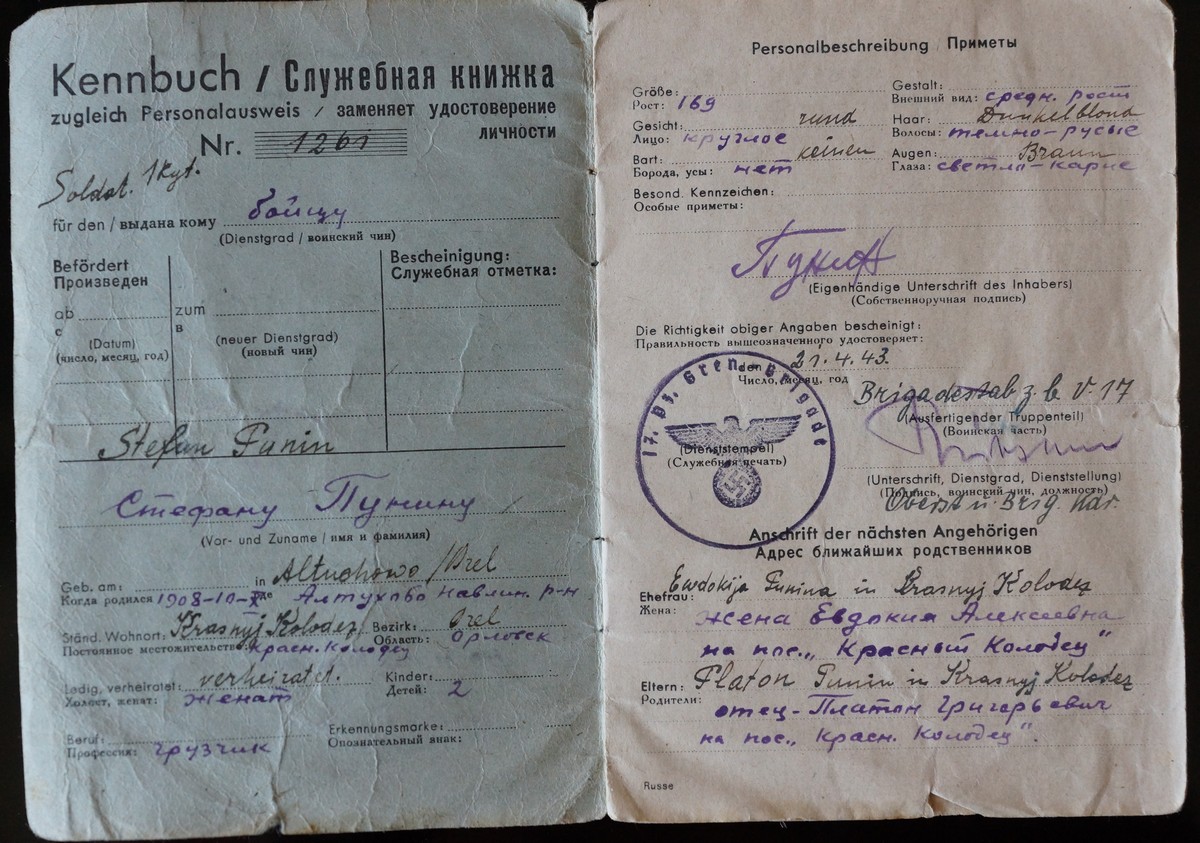 Kennbuch / Служебная книжка
zugleich Personalausweis / заменяет удостоверение
личности
Nr. 1261
Soldat. 1 Kyt.
für den / выдана кому бойцу
(Dienstgrad / воинский чин)
Befördert
Произведен
Bescheinigung:
Служебная отметка:
ab
с
zum
в
(Datum)
(число, месяц, год)
(neuer Dienstgrad)
(новый чин)
Stefan Punin
Стефану Пунину
(Vor- und Zuname / имя и фамилия)
Geb. am: in Altuchowo / Orel
Когда родился 1908-10-X где Алтухово Навлин. р-н
Ständ. Wohnort: Krasnyj Kolodez Bezirk: Orel
Постоянное местожительство: Красн. Колодец Область: Орловск
Ledig, verheiratet: verheiratet. Kinder:
Холост, женат: женат Детей: 2
Beruf:
Профессия: грузчик
Erkennungsmarke:
Опознательный знак:
Personalbeschreibung / Приметы
Größe: Gestalt:
Рост: 169 Внешний вид: средн. рост
Gesicht: rund Haar: Dunkelblond
Лицо: круглое Волосы: темно-русые
Bart: keinen Augen: Braun
Борода, усы: нет Глаза: светло-карие
Besond. Kennzeichen:
Особые приметы:
(Eigenhändige Unterschrift des Inhabers)
(Собственноручная подпись)
Die Richtigkeit obiger Angaben bescheinigt:
Правильность вышеозначенного удостоверяет:
den 21.4.43.
Число, месяц, год
Brigadestab z. b. V 17
(Ausfertigender Truppenteil)
(Воинская часть)
17. Pz. Gren. Brigade
(Dienststempel)
(Служебная печать)
(Unterschrift, Dienstgrad, Dienststellung)
(Подпись, воинский чин, должность)
Oberst u. Brig. Kdr.
Anschrift der nächsten Angehörigen
Адрес ближайших родственников
Ehefrau: Ewdokija Punina in Krasnyj Kolodez
Жена: жена Евдокия Алексеевна
на пос. „Красный Колодец"
Eltern: Platon Punin in Krasnyj Kolodez
Родители: отец-Платон Григорьевич
на пос. „Красн. Колодец".
Russe